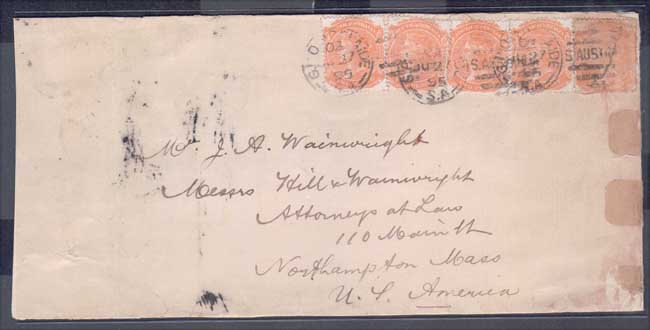 Mr J. A. Wainwright
Messrs Hill & Wainwright
Attorneys at Law
110 Main St
Northampton Mass
U. S. America
95
S.A.